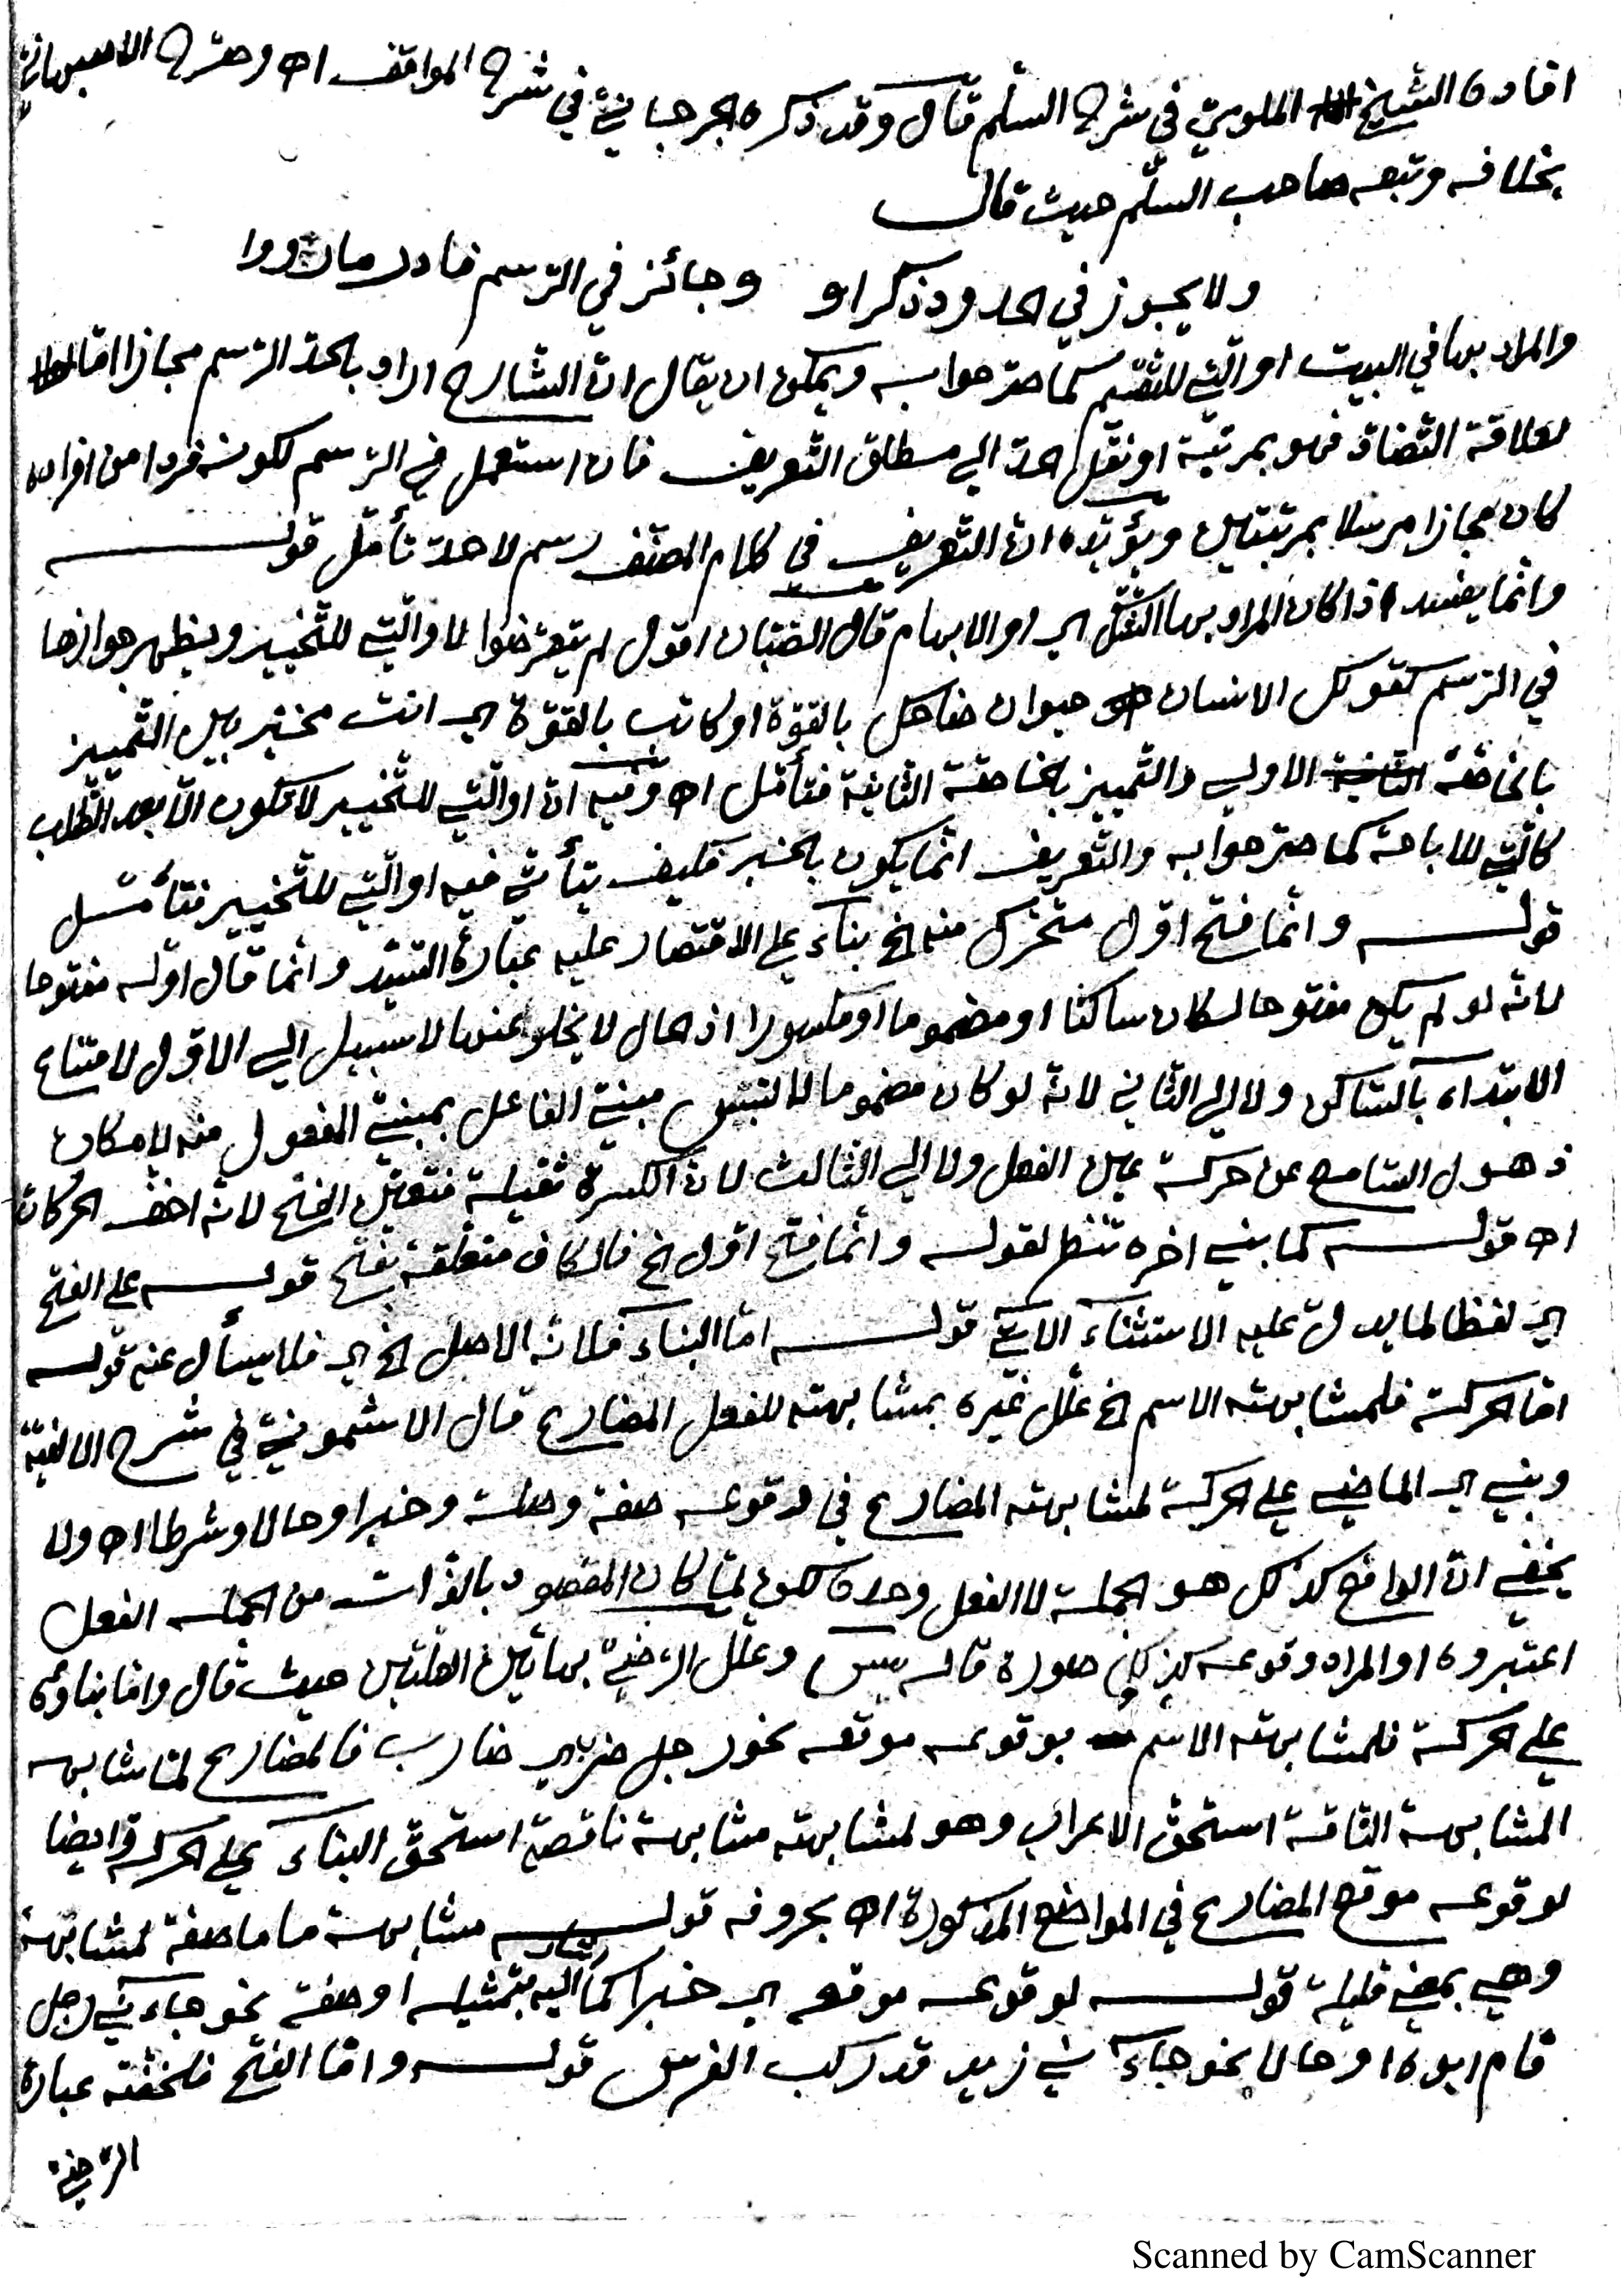 افاده الشيخ الملوي في شرح السلم قال وقد ذكره الجرجاني في شرح المواقف اه وصرح الاصبهاني
بخلافه وتبعه صاحب السلّم حيث قال
ولا يجوز في الحدود ذكر او وجائز في الرسم فادر ما رووا
والمراد بها في البيت او الّتي للتقسيم كما صرحوا به ويمكن ان يقال انّ الشارح اراد بالحدّ الرسم مجازا امّا
لعلاقة التضادّ فهو بمرتبة او نقل الحد الي مطلق التعريف فان استعمل في الرسم لكونه فردا من افراده
كان مجازا مرسلا بمرتبتين ويؤيّده انّ التعريف في كلام المصنف رسم لا حدّ تأمّل قوله
وانّما يفسد اذا كان المراد بها الشّكّ اي او الابهام قال الصّبّان اقول لم يتعرّضوا لاو الّتي للتّخيير ويظهر جوازها
في الرّسم كقولك الانسان حيوان ضاحك بالقوّة او كاتب بالقوّة اي انت مخيّر بين التّمييز
بالخاصّة الاولي والتّمييز بالخاصّة الثانية فتأمّل اه وفيه انّ او الّتي للتّخيير لا تكون الّا بعد الطّلب
كالّتي للاباحة كما صرحوا به والتّعريف انّما يكون بالخبر فكيف يتأتّي فيه او الّتي للتّخيير فتأمّل
قوله وانّما فتح اوّل متحرّك منه الخ بناء علي الاقتصار عليه عبارة السّيّد وانّما قال اوّله مفتوحا
لانّه لو لم يكن مفتوحا لكان ساكنا او مضموما او مكسورا اذ الحال لا يخلو عنها لا سبيل الي الاوّل لامتناع
الابتداء بالسّاكن ولا الي الثاني لانّه لو كان مضموما لالتبس مبنيّ الفاعل بمبنيّ المفعول منه لامكان
ذهول السّامع عن حركة عين الفعل ولا الي الثالث لانّ الكسرة ثقيلة فتعيّن الفتح لانّه اخفّ الحركات
اه قوله كما بني اخره تنظير لقوله وانّما فتح اوّل الخ فالكاف متعلّقة بفتح قوله علي الفتح
اي لفظا لما يدلّ عليه الاستثناء الاتي قوله امّا البناء فلانّه الاصل الخ اي فلا يسأل عنه قوله
امّا الحركة فلمشابهته الاسم الخ علّل غيره بمشابهته للفعل المضارع قال الاشموني في شرح الالفيّة
وبني اي الماضي علي الحركة لمشابهته المضارع في وقوعه صفة وصلة وخبرا وحالا وشرطا اه ولا
يخفي انّ الواقع كذلك هو الجملة لا الفعل وحده لكن لمّا كان المقصود بالذّات من الجملة الفعل
اعتبروه او المراد وقوعه كذلك صورة قاله يس وعلّل الرّضيّ بهاتين العلّتين حيث قال وامّا بناؤه
علي الحركة فلمشابهته الاسم بوقوعه موقعه نحو رجل ضرب اي ضارب فالمضارع لمّا شابهه
المشابهة التّامّة استحقّ الاعراب وهو لمشابهته مشابهة ناقصة استحقّ البناء علي الحركة وايضا
لوقوعه موقع المضارع في المواضع المذكورة اه بحروفه قوله مشابهة ما ما صفة لمشابهة
وهي بمعني قليلة قوله لوقوعه موقعه اي خبرا كما اشار اليه بتمثيله او صفة نحو جاءني رجل
قام ابوه او حالا نحو جاءني زيد قد ركب الفرس قوله وامّا الفتح فلخفّته عبارة
الرّضيّ
Scanned by CamScanner